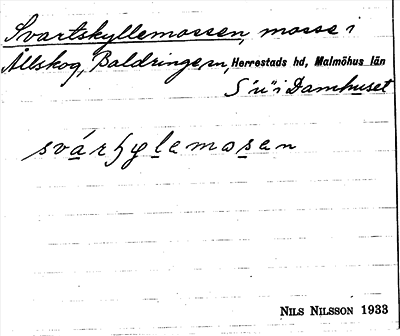 Svartskyllemossen, mosse i
Allskog, Baldringe sn, Herrestads hd, Malmöhus län
S "u" i Damhuset
svárhylemosen
NILS NILSSON 1933